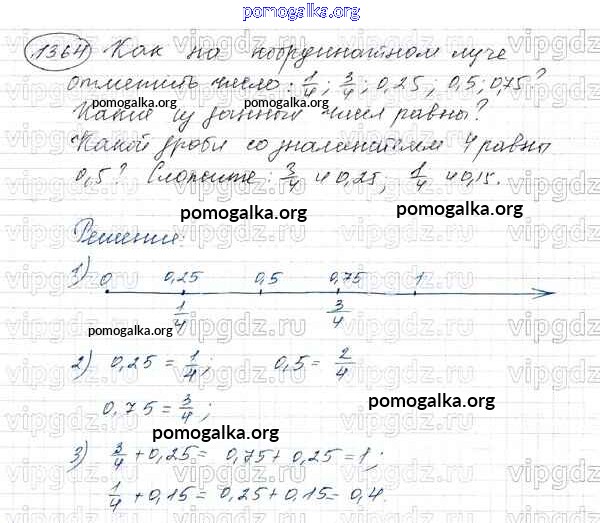 pomogalka.org
1364 Как на координатном луче
отметить число: 1/4; 3/4; 0,25; 0,5; 0,75?
pomogalka.org pomogalka.org
Какие из данных чисел равны?
Какой дроби со знаменателем 4 равны
0,5? Сложите: 3/4 и 0,25, 1/4 и 0,15.
pomogalka.org pomogalka.org
Решение:
1) 0 0,25 0,5 0,75 1
1/4 3/4
pomogalka.org
2) 0,25 = 1/4; 0,5 = 2/4
0,75 = 3/4;
pomogalka.org
pomogalka.org
3) 3/4 + 0,25 = 0,75 + 0,25 = 1;
1/4 + 0,15 = 0,25 + 0,15 = 0,4.
pomogalka.org